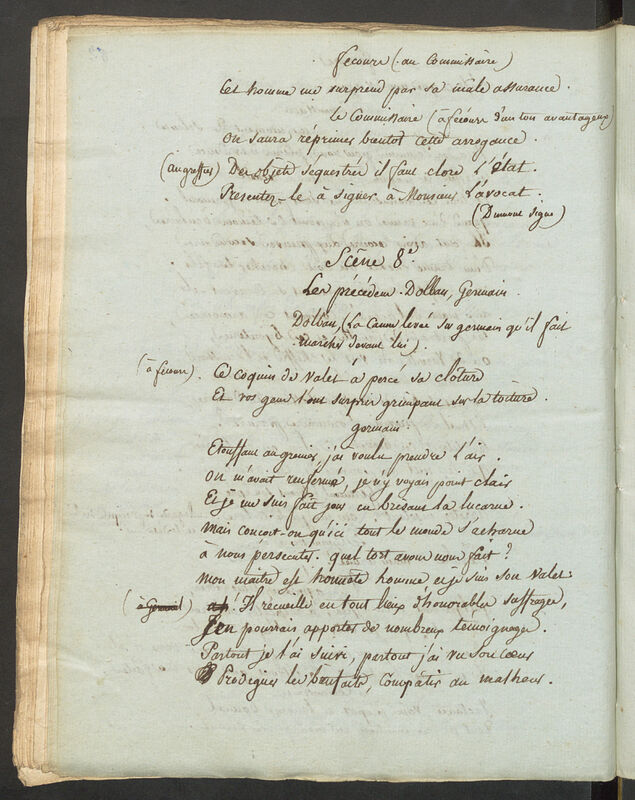 fécour (au Commissaire)
Cet homme me surprend par sa mâle assurance.
le Commissaire (à fécour d'un ton avantageux)
On saura réprimer bientot cette arrogance.
(au greffier) Des objets séquestrés il faut clore L'état.
Presentez-le à signer à Monsieur L'avocat.
(Dumont signe)
Scêne 8e.
Les précédens. Dolban, Germain.
Dolban, (La Canne levée sur germain qu'il fait
marcher devant lui).
(à fécour) Ce coquin de Valet à percé sa clôture
Et vos gens l'ont surpris grimpant sur la toiture.
germain
Etouffant au grenier, j'ai voulu prendre l'air.
On m'avait renfermé, je n'y voyais point clair
Et je me suis fait jour en brisant la lucarne.
Mais conçoit-on qu'ici tout le monde s'acharne
à nous persécuter. quel tort avons nous fait ?
Mon maitre est honnête homme et je suis son Valet.
Il recueille en tout lieux d'honorables suffrages,
J'en pourrais apporter de nombreux temoignages.
Partout je l'ai suivi, partout j'ai vu son cœur
Prodiguer les bienfaits, Compâtir au malheur.